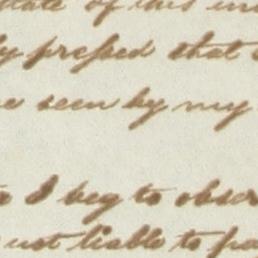 state of this in
ly pressed that
e seen by my
I beg to obser
not liable to pa